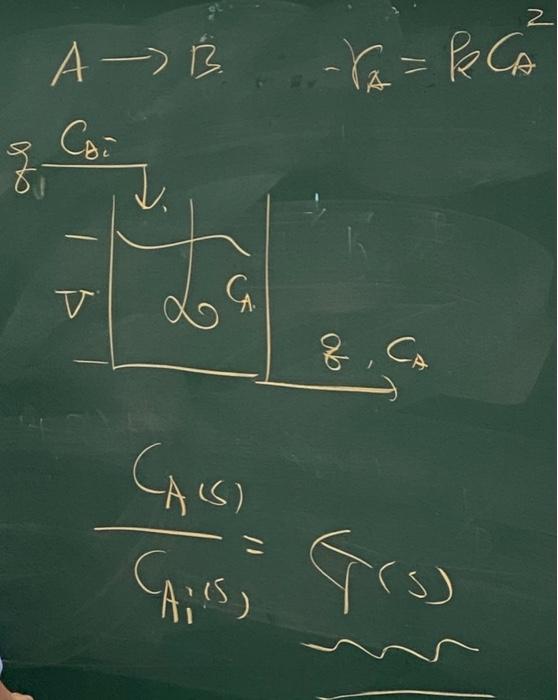 A → B   -r_A = k C_A^2
q, C_Ai
V   C_A
q, C_A
C_A(s)
C_Ai(s)
= G(s)